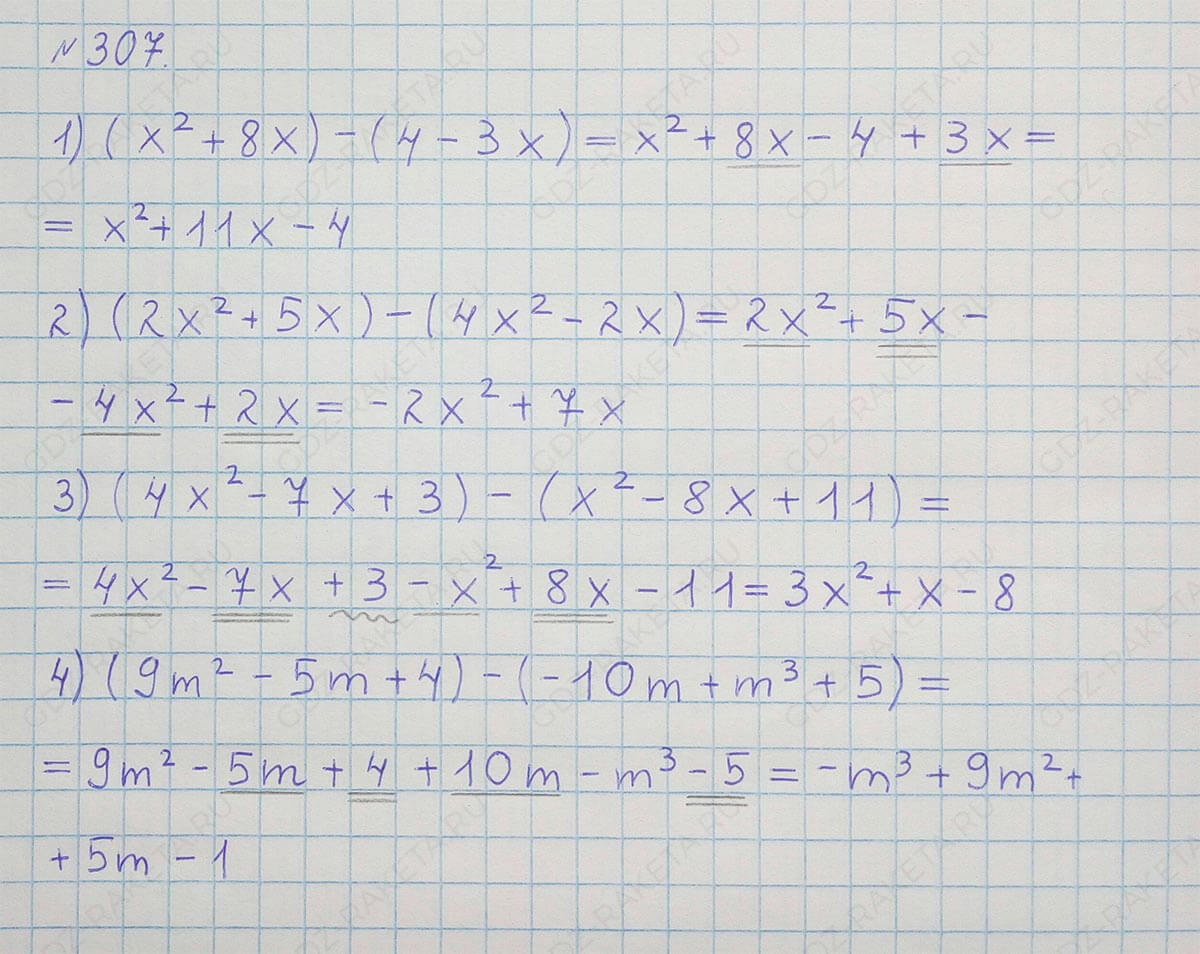 №307.
1) (x² + 8x) - (4 - 3x) = x² + 8x - 4 + 3x =
= x² + 11x - 4
2) (2x² + 5x) - (4x² - 2x) = 2x² + 5x -
- 4x² + 2x = -2x² + 7x
3) (4x² - 7x + 3) - (x² - 8x + 11) =
= 4x² - 7x + 3 - x² + 8x - 11 = 3x² + x - 8
4) (9m² - 5m + 4) - (-10m + m³ + 5) =
= 9m² - 5m + 4 + 10m - m³ - 5 = -m³ + 9m² +
+ 5m - 1
GDZ-RAKETA.RU